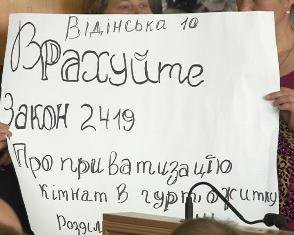 Відінська 10
Врахуйте
Закон 2419
Про приватизацію
кімнат в гуртожитку